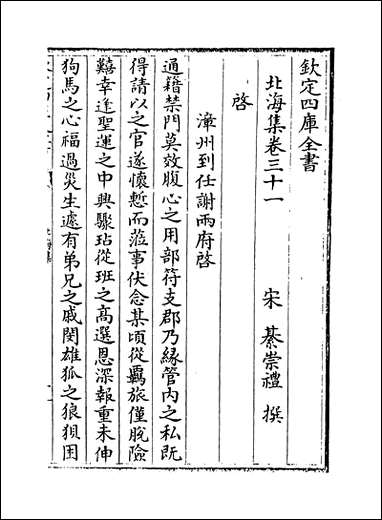 欽定四庫全書
北海集卷三十一
宋 綦崇禮 撰
啓
漳州到任謝兩府啓
通籍禁門莫效腹心之用部符支郡乃縁管內之私既
得請以之官遂懷慙而蒞事伏念某頃從羇旅僅脫險
囏幸逢聖運之中興驟玷從班之高選恩深報重未伸
狗馬之心福過災生遽有弟兄之戚閔雄狐之狼狽困